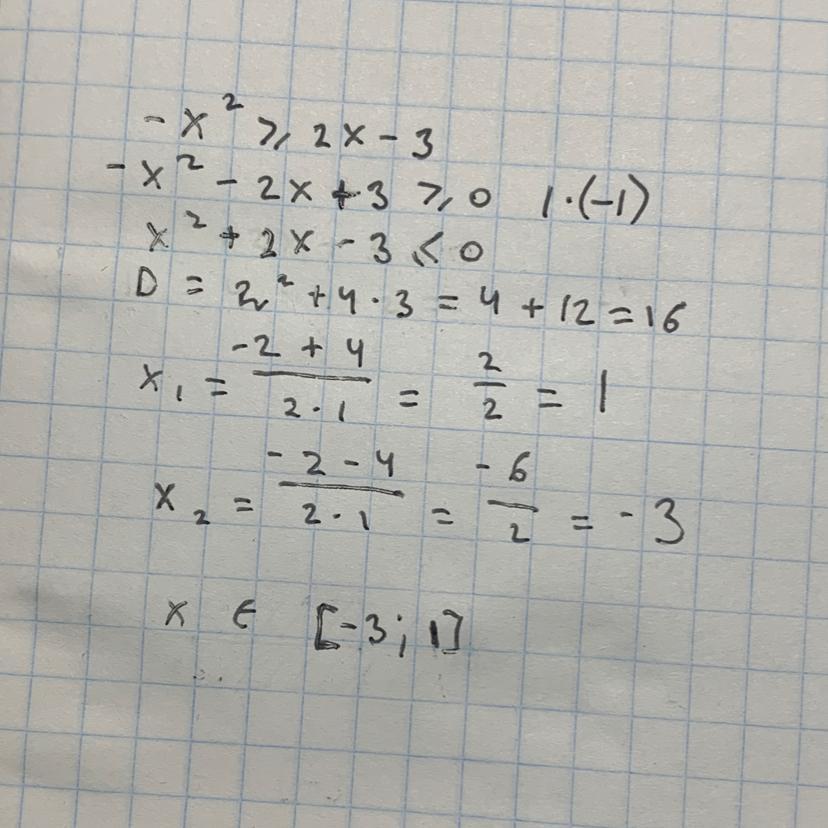 -x² ⩾ 2x - 3
-x² - 2x + 3 ⩾ 0 | · (-1)
x² + 2x - 3 ⩽ 0
D = 2² + 4 · 3 = 4 + 12 = 16
x₁ = (-2 + 4)/(2 · 1) = 2/2 = 1
x₂ = (-2 - 4)/(2 · 1) = -6/2 = -3
x ∈ [-3; 1]